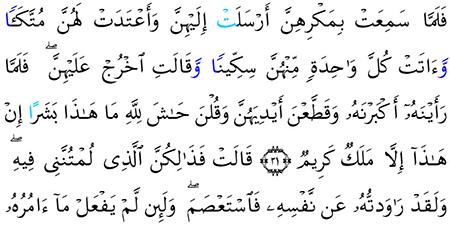 فَلَمَّا سَمِعَتْ بِمَكْرِهِنَّ أَرْسَلَتْ إِلَيْهِنَّ وَأَعْتَدَتْ لَهُنَّ مُتَّكَـًٔا
وَّءَاتَتْ كُلَّ وَٰحِدَةٍ مِّنْهُنَّ سِكِّينًا وَّقَالَتِ ٱخْرُجْ عَلَيْهِنَّ ۖ فَلَمَّا
رَأَيْنَهُۥٓ أَكْبَرْنَهُۥ وَقَطَّعْنَ أَيْدِيَهُنَّ وَقُلْنَ حَـٰشَ لِلَّهِ مَا هَـٰذَا بَشَرًا إِنْ
هَـٰذَآ إِلَّا مَلَكٌ كَرِيمٌ ۝٣١ قَالَتْ فَذَٰلِكُنَّ ٱلَّذِى لُمْتُنَّنِى فِيهِ ۖ
وَلَقَدْ رَٰوَدتُّهُۥ عَن نَّفْسِهِۦ فَٱسْتَعْصَمَ ۖ وَلَئِن لَّمْ يَفْعَلْ مَآ ءَامُرُهُۥ